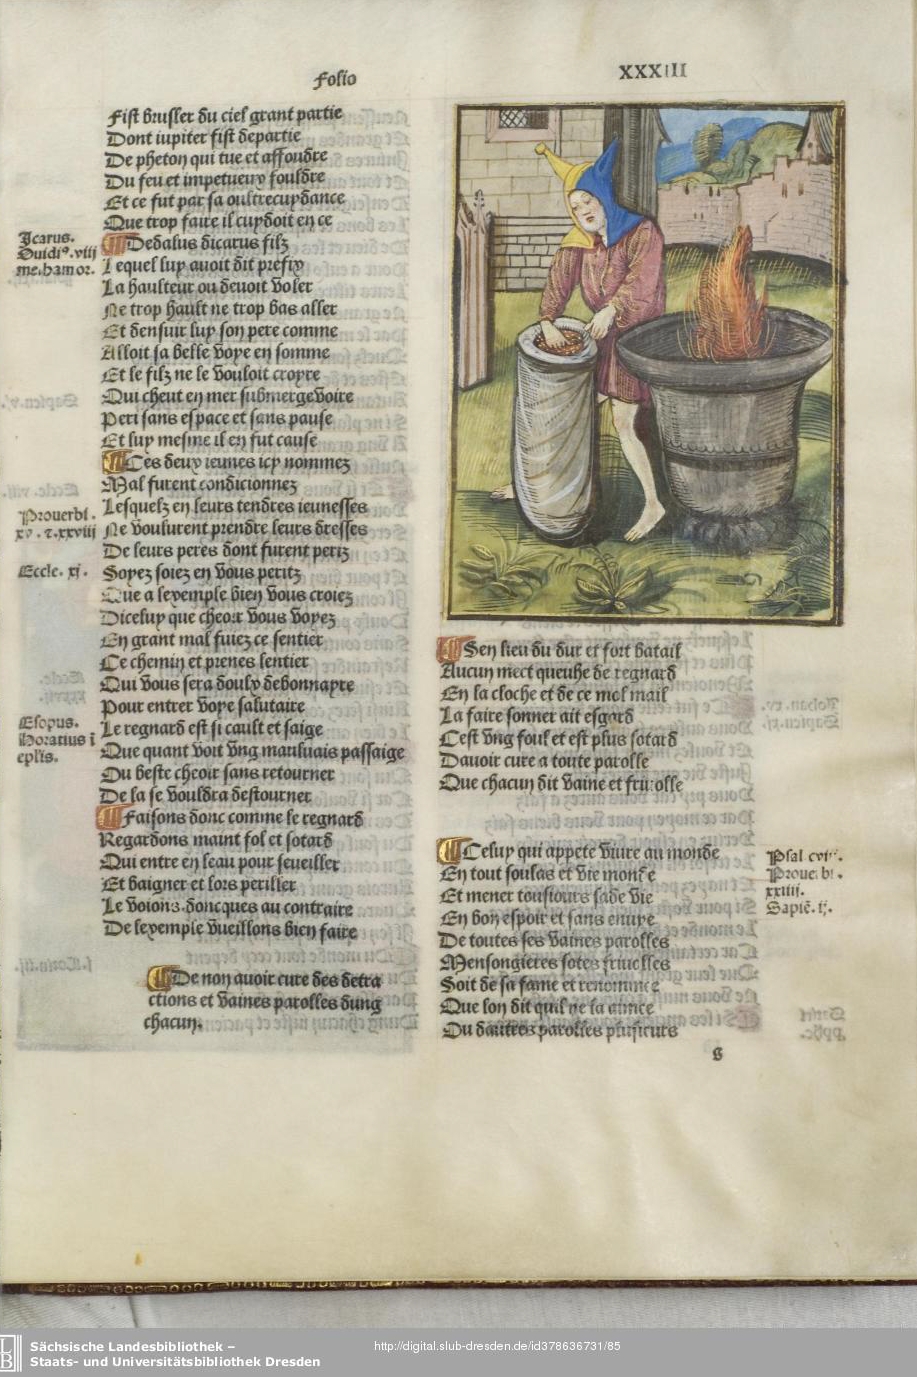 Folio
XXXIII
Fist brusler du ciel grant partie
Dont iupiter fist departie
De pheton qui tue et affoudre
Du feu et impetueux fouldre
Et ce fut par sa oultrecuydance
Que trop faire il cuydoit en ce
Dedalus dicarus filz
Lequel luy auoit dit prefix
La haulteur ou deuoit voler
Ne trop hault ne trop bas aller
Et densuir luy son pere comme
Alloit sa belle voye en somme
Et le filz ne le vouloit croyre
Qui cheut en mer submerge voire
Peri sans espace et sans pause
Et luy mesme il en fut cause
Ces deux ieunes icy nommez
Mal furent condicionnez
Lesquelz en leurs tendres ieunesses
Ne voulurent prendre leurs dresses
De leurs peres dont furent periz
Soyez soiez en vous peritz
Que a lexemple bien vous croiez
Diceluy que cheoir vous voyez
En grant mal fuiez ce sentier
Ce chemin et prenes sentier
Qui vous sera doulx debonnayre
Pour entrer voye salutaire
Le regnard est si cault et saige
Que quant voit vng mauluais passaige
Ou beste cheoir sans retourner
De la se vouldra destourner
Faisons donc comme le regnard
Regardons maint fol et sotard
Qui entre en leau pour seueiller
Et baigner et lors periller
Le voions doncques au contraire
De lexemple vueillons bien faire
De non auoir cure des detra
ctions et vaines parolles dung
chacun.
Icarus.
Ouidi⁹. viij
me. ha mor.
Prouerbi.
xv. ⁊. xxviij
Eccle. xj.
Esopus.
Horatius i
eplis.
Sen lieu du dur et fort batail
Aucun mect queuhe de regnard
En la cloche et de ce mol mail
La faire sonner ait esgard
Cest vng foul et est plus sotard
Dauoir cure a toute parolle
Que chacun dit vaine et friuolle
Celuy qui appete viure au monde
En tout soulas et vie monde
Et mener tousiours sade vie
En bon espoir et sans enuye
De toutes ses vaines parolles
Mensongieres sotes friuolles
Soit de sa fame et renommee
Que lon dit quil ne la aimee
Ou dautres parolles plusieurs
Psal cvii.
Proue. bi.
xxiiii.
Sapiē. ij.
g
Sächsische Landesbibliothek –
Staats- und Universitätsbibliothek Dresden
http://digital.slub-dresden.de/id378636731/85